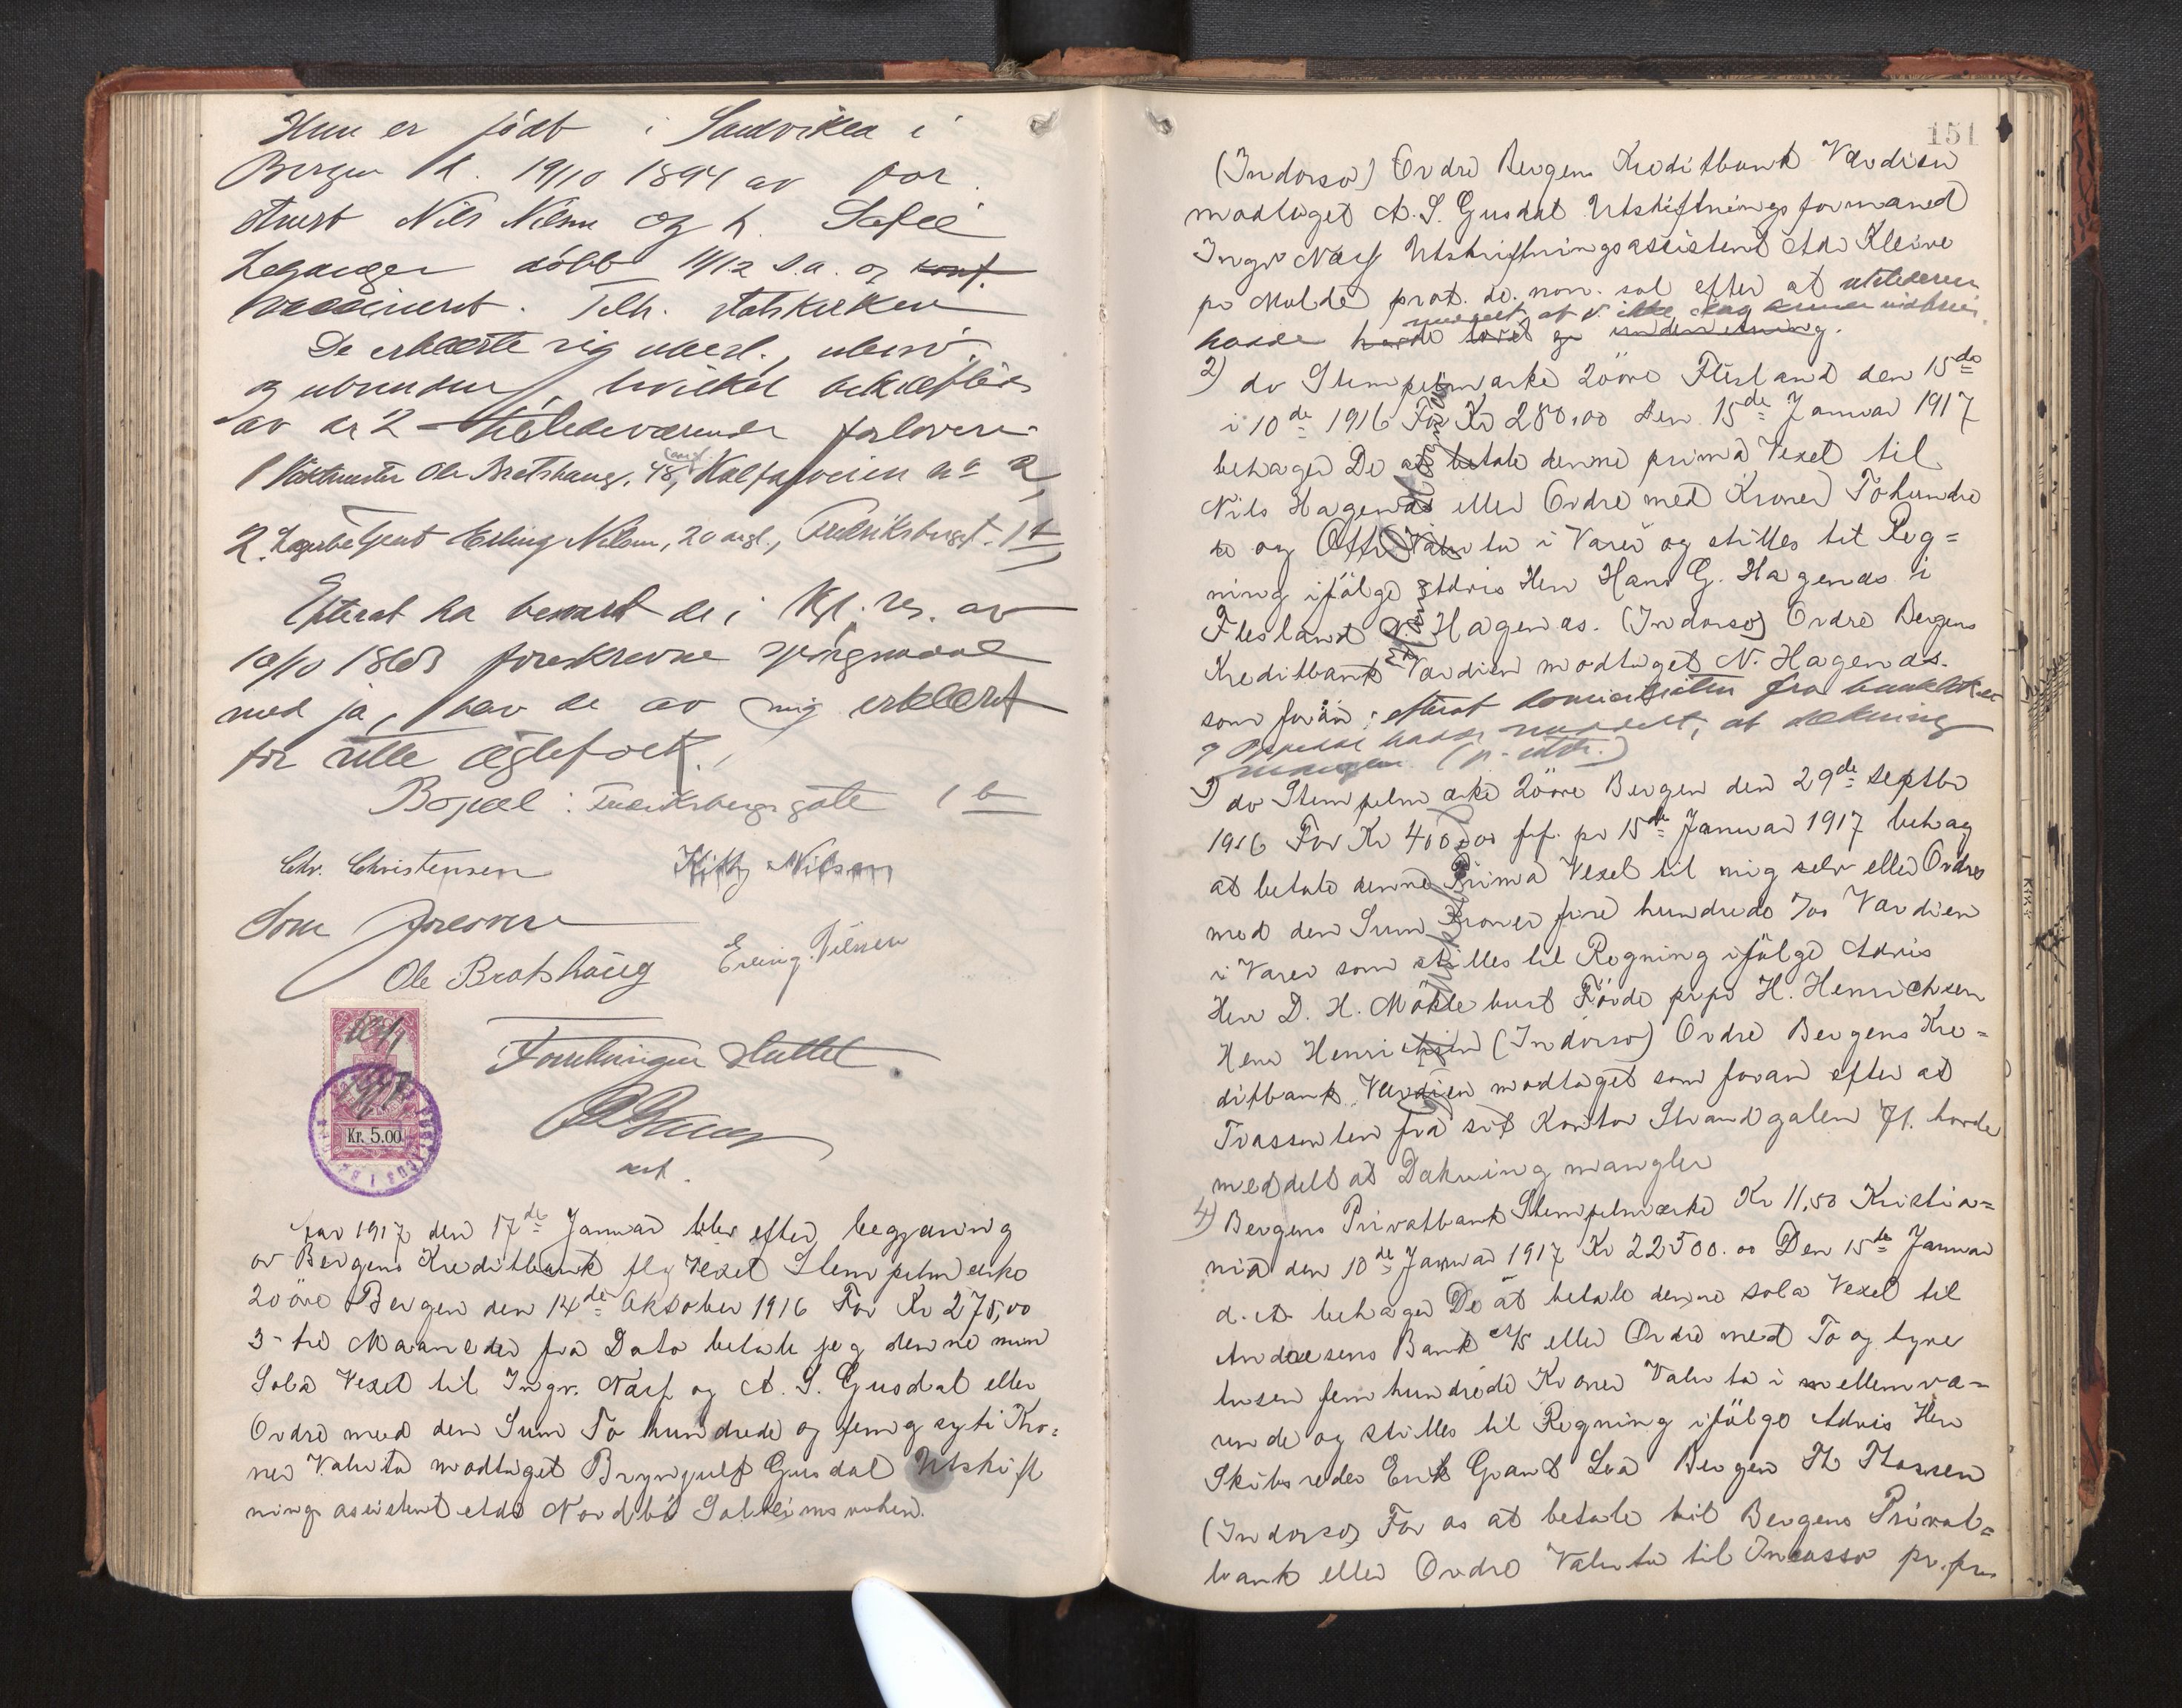 Hun er födt i Sandviken i
Bergen d. 19/10 1894 av for.
stuert Nils Nilsen og h. Sofie
Leganger döbt 11/12 s.a. og konf.
vaccineret. Tilh. statskirken
De erklærte sig ubesl., ubesv.
og ubundne, hvilket bekræftedes
av de 2 tilstedeværende forlovere
1 Vaktmester Ole Bratshaug, 48 aar, Kalfarveien no 2,
2. Lagerbetjent Erling Nilsen, 20 aar gl., Fredriksbergsgt. 1 b
Efterat ha besvart de i Kgl. res. av
10/10 1863 foreskrevne spörgsmaal
med ja, blev de av mig erklært
for rette ægtefolk.
Bopæl: Fredriksbergsgate 1 b
Chr. Christensen Kitty Nilsen
Som forlovere
Ole Bratshaug Erling Nilsen
Forretningen sluttet
Kr. 5.00
aut.
Aar 1917 den 17de Januar blev efter begjæring
av Bergens Kreditbank flg Vexel Stempelmerke
20 öre Bergen den 14de Oktober 1916 For Kr 275,00
3 - tre Maaneder fra Dato betale jeg denne min
Sola Vexel til Ingv. Næss og A. S. Gusdal eller
Ordre med den Sum To hundrede og femogsyti Kro-
ner Valuta modtaget Brynjulf Gusdal Utskift
nings assistent adr Nordbö Solheimsviken.
151
(Indorso) Ordre Bergens Kreditbank Værdien
modtaget A. S. Gusdal Utskiftningsformand
Ingv Næss Utskiftningsassistent Adr Kleive
pr Molde prot. de. non. sol efter at utstederen
meddelt at v. ikke idag kunde indfries.
hadde havde svaret gr underretning.
2) do Stempelmærke 20 öre Flesland den 15de
i 10de 1916 For Kr 280,00 Den 15de Januar 1917
behager De at betale denne prima Vexel til
Nils Hagenæs eller Ordre med Kroner Tohundre
de og Otti Valuta i Varer og stilles til Reg=
ning ifölge Advis Herr Hans G. Hagenæs i
Flesland N. Hagenæs. (Indorso) Ordre Bergens
Kreditbank Værdien modtaget N. Hagenæs.
som foran; efterat
hadde meddelt, at dækning
mangler
3) do Stempelmærke 20 öre Bergen den 29de Septbr
1916 For Kr 400,00 frf. pr 15de Januar 1917 behag
at betale denne Prima Vexel til mig selv eller Ordre
med den Sum Kroner fire hundrede 700 Værdien
i Varer som stilles til Regning ifölge Advis
Herr D. H. Mökle bust Förde pr pr H. Henrichsen
Henr Henrichsen (Indorso) Ordre Bergens Kre=
ditbank Værdien modtaget som foran efter at
Trassenten fra sit Kontor Strandgaten 71. havde
meddelt at Dækning mangler
4) Bergens Privatbank Stempelmærke Kr 11,50 Kristia=
nia den 10de Januar 1917 Kr 22500.00 Den 15de Januar
d. A. behager De at betale denne sola Vexel til
Andresens Bank A/S eller Ordre med To og tyve
tusen fem hundrede Kroner Valuta i mellemvæ=
rende og stilles til Regning ifölge Advis Herr
Skibsreder Erik Grant Lea Bergen Th Thorsen
(Indorso) For os at betale til Bergens Privat=
bank eller Ordre Valuta til Incasso pr. pro